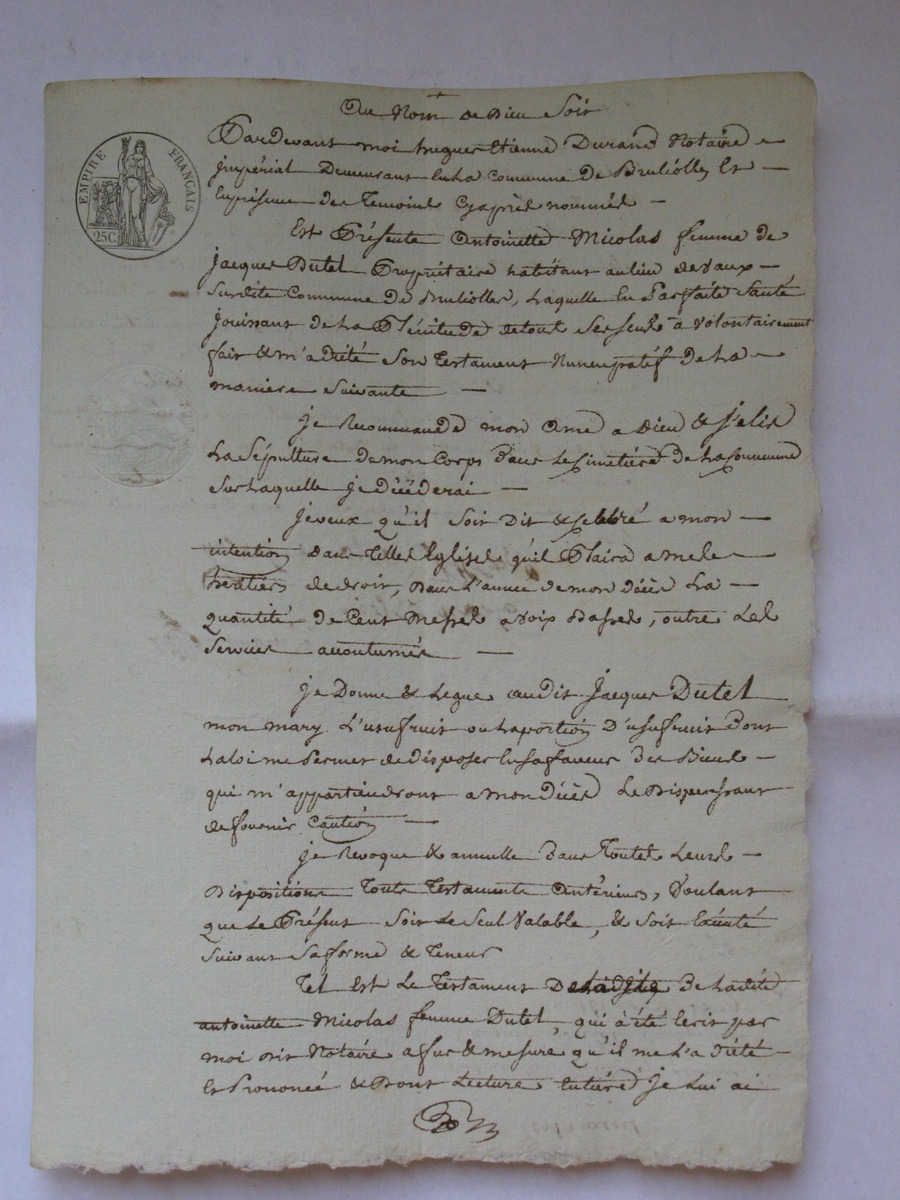 Au Nom de Dieu Soit
EMPIRE FRANÇAIS
25C
Pardevant moi hugues Etienne Durand Notaire
Impérial Demeurant En la Commune de Brulliolles Et
En présence des Temoins Cyaprès nommés
Est Présente Antoinette Micolas femme de
Jacques Dutel Propriétaire habitant au lieu de Vaux
Susdite Commune de Brulliolles, Laquelle En Parfaite Santé
Jouissant de La Plénitude de tous Ses Sens à Volontairement
fait & m'a dicté Son Testament Nuncupatif de La
maniere Suivante
je Recommande mon Ame a Dieu & j'elis
La Sépulture de mon Corps Dans Le Cimetière de La Commune
Sur Laquelle je Décèderai
je veux qu'il Soit Dit & Celebré a mon
intention Dans Telles Eglises qu'il Plaira a mes
heritiers de droit, Dans L'année de mon Décès La
quantité de Cent Messes a Voix Basses, outre Les
Services accoutumés
je Donne & Legue audit Jacques Dutel
mon mary L'usufruit ou La portion D'usufruit Dont
La loi me Permet de disposer En Sa faveur Des Biens
qui m'appartiendront a mon Décès Le Dispensant
de fournir Caution
je Revoque & annulle Dans Toutes Leurs
Dispositions Tous Testaments Antérieurs, Voulant
que Le Présent Soit Le Seul Valable, & Soit Exécuté
Suivant Sa forme & Teneur
Tel Est Le Testament De Ladite
antoinette Micolas femme Dutel, qui à été Ecrit par
moi dit Notaire a fur & mesure qu'il me L'a dicté
Et Prononcé & Dont Lecture Entière je Lui ai